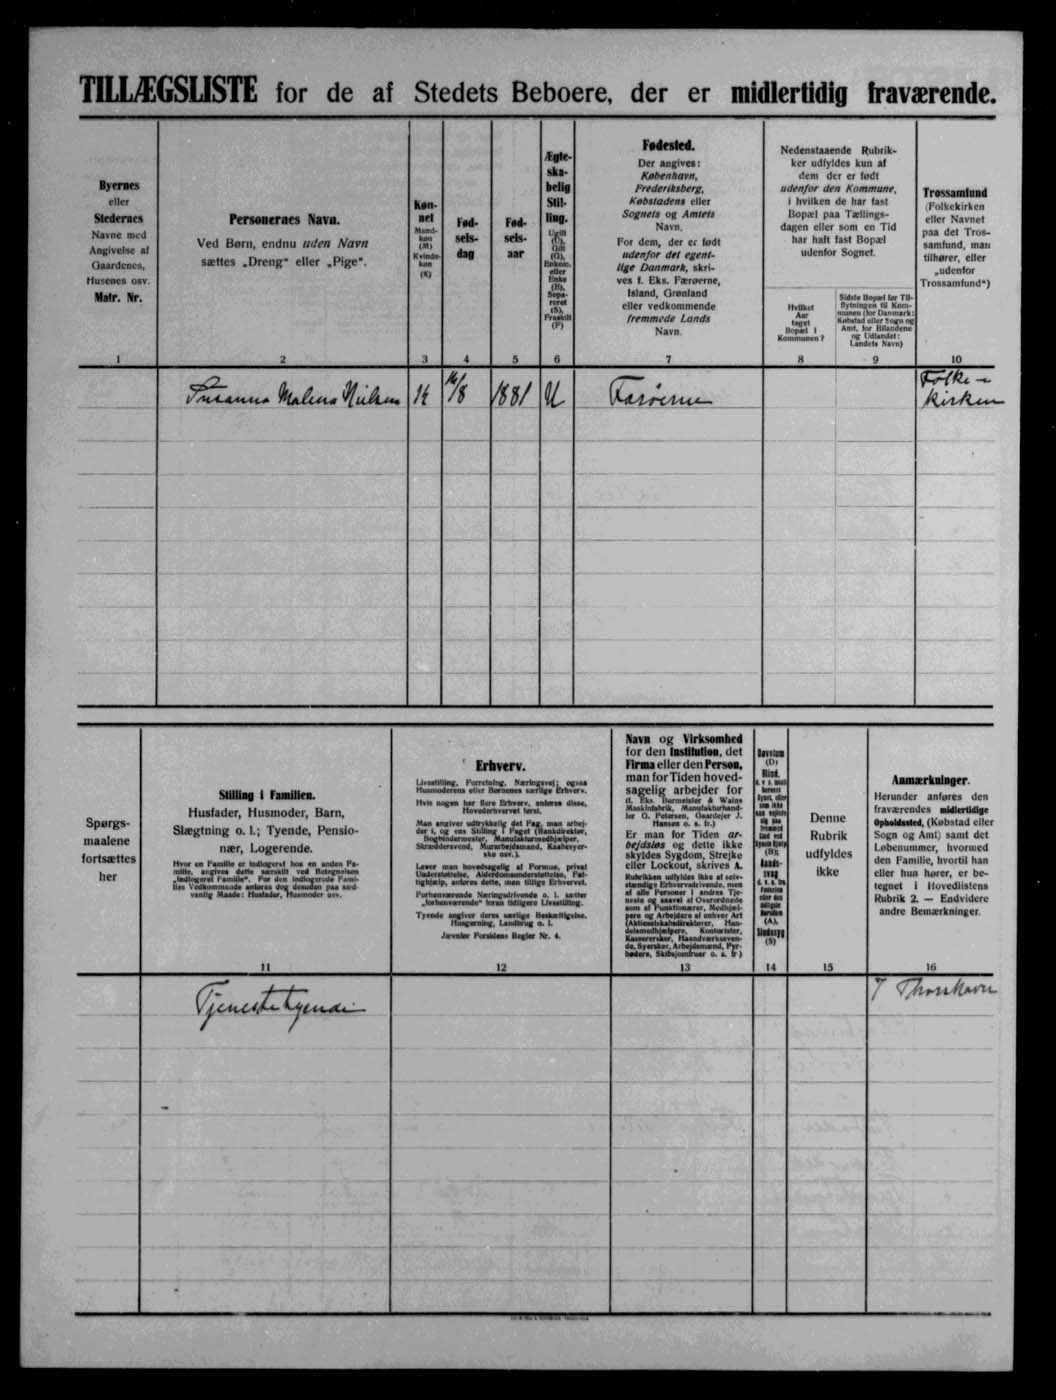 TILLÆGSLISTE for de af Stedets Beboere, der er midlertidig fraværende.
Byernes
eller
Stedernes
Navne med
Angivelse af
Gaardenes,
Husenes osv.
Matr. Nr.
1
Personernes Navn.
Ved Børn, endnu uden Navn
sættes „Dreng“ eller „Pige“.
2
Køn-
net
Mand-
køn
(M)
Kvinde-
køn
(K)
3
Fød-
sels-
dag
4
Fød-
sels-
aar
5
Ægte-
ska-
belig
Stil-
ling.
Ugift
(U),
Gift
(G),
Enkem.
eller
Enke
(E),
Sepa-
reret
(S),
Fraskilt
(F)
6
Fødested.
Der angives:
København,
Frederiksberg,
Købstadens eller
Sognets og Amtets
Navn.
For dem, der er født
udenfor det egent-
lige Danmark, skri-
ves f. Eks. Færøerne,
Island, Grønland
eller vedkommende
fremmede Lands
Navn.
7
Nedenstaaende Rubrik-
ker udfyldes kun af
dem der er født
udenfor den Kommune,
i hvilken de har fast
Bopæl paa Tællings-
dagen eller som en Tid
har haft fast Bopæl
udenfor Sognet.
Hvilket
Aar
taget
Bopæl i
Kommunen?
8
Sidste Bopæl før Til-
flytningen til Kom-
munen (for Danmark:
Købstad eller Sogn og
Amt, for Bilandene
og Udlandet:
Landets Navn)
9
Trossamfund
(Folkekirken
eller Navnet
paa det Tros-
samfund, man
tilhører, eller
„udenfor
Trossamfund“)
10
Susanna Malena Nielsen K 16/8 1881 U Færøerne Folke-
kirken
Spørgs-
maalene
fortsættes
her
Stilling i Familien.
Husfader, Husmoder, Barn,
Slægtning o. l.; Tyende, Pensio-
nær, Logerende.
Hvor en Familie er indlogeret hos en anden Fa-
milie, angives dette særskilt ved Betegnelsen
„indlogeret Familie“. For den indlogerede Fami-
lies Vedkommende anføres dog desuden paa sæd-
vanlig Maade: Husfader, Husmoder osv.
11
Erhverv.
Livsstilling, Forretning, Næringsvej; ogsaa
Husmoderens eller Børnenes særlige Erhverv.
Hvis nogen har flere Erhverv, anføres disse,
Hovederhvervet først.
Man angiver udtrykkelig det Fag, man arbej-
der i, og ens Stilling i Faget (Bankdirektør,
Bogbindermester, Manufakturmedhjælper,
Skræddersvend, Murarbejdsmand, Kaabesyer-
ske osv.).
Lever man hovedsagelig af Formue, privat
Understøttelse, Alderdomsunderstøttelse, Fat-
tighjælp, anføres dette, men tillige Erhvervet.
Forhenværende Næringsdrivende o. l. sætter
„forhenværende“ foran tidligere Livsstilling.
Tyende angiver deres særlige Beskæftigelse,
Husgerning, Landbrug o. l.
Jævnfør Forsidens Regler Nr. 4.
12
Navn og Virksomhed
for den Institution, det
Firma eller den Person,
man for Tiden hoved-
sagelig arbejder for
(f. Eks. Burmeister & Wains
Maskinfabrik, Manufakturhand-
ler O. Petersen, Gaardejer J.
Hansen o. s. fr.)
Er man for Tiden ar-
bejdsløs og dette ikke
skyldes Sygdom, Strejke
eller Lockout, skrives A.
Rubrikken udfyldes ikke af selv-
stændige Erhvervsdrivende, men
af alle Personer i andres Tje-
neste og saavel af Overordnede
som af Funktionærer, Medhjæl-
pere og Arbejdere af enhver Art
(Aktieselskabsdirektører, Han-
delsmedhjælpere, Kontorister,
Kasserersker, Haandværkssven-
de, Syersker, Arbejdsmænd, Fyr-
bødere, Skibsjomfruer o. s. fr.)
13
Døvstum
(D)
Blind,
(B);
Aands-
svag
(A),
Sindssyg
(S)
14
Denne
Rubrik
udfyldes
ikke
15
Anmærkninger.
Herunder anføres den
fraværendes midlertidige
Opholdssted, (Købstad eller
Sogn og Amt) samt det
Løbenummer, hvormed
den Familie, hvortil han
eller hun hører, er be-
tegnet i Hovedlistens
Rubrik 2. — Endvidere
andre Bemærkninger.
16
Tjenestetyende
I Thorshavn